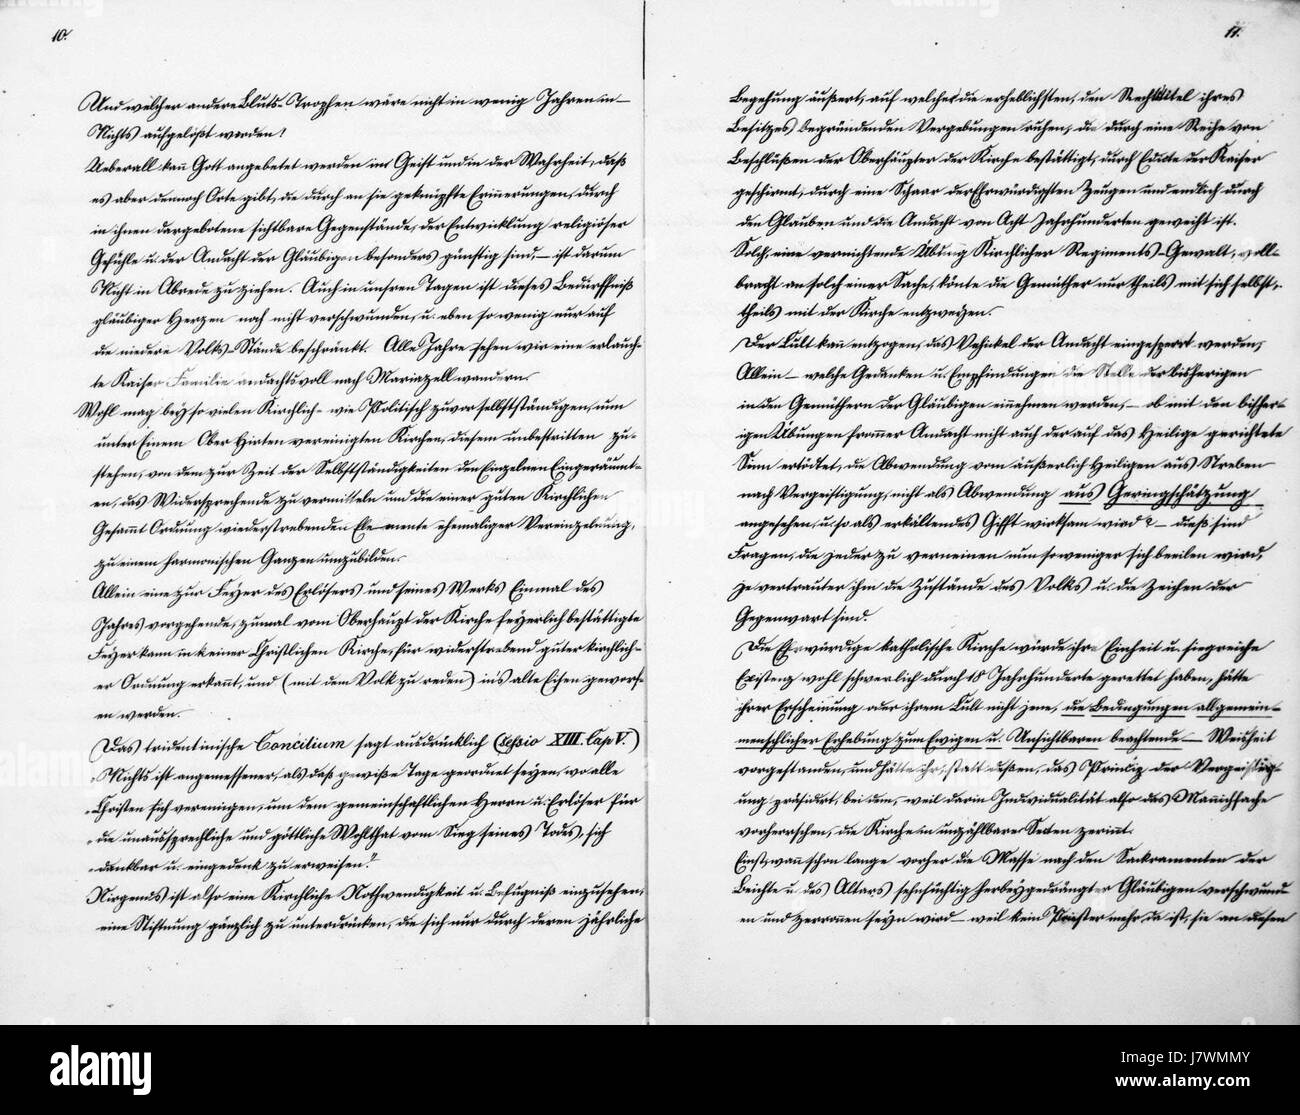 10.
Und welcher andere Bluts-Tropfen wäre nicht in wenig Jahren in
Nichts aufgelößt worden!
Ueberall kann Gott angebetet werden im Geist und in der Wahrheit, daß
es aber dennoch Orte gibt, die durch an sie geknüpfte Erinnerungen, durch
in ihnen dargebotene sichtbare Gegenstände, der Entwicklung religiöser
Gefühle u. der Andacht der Gläubigen besonders günstig sind, – ist darum
Nicht in Abrede zu ziehen. Auch in unsren Tagen ist dieses Bedürffniß
gläubiger Herzen noch nicht verschwunden, u. eben so wenig nur auf
die niedere Volks-Stände beschränkt. Alle Jahre sehen wir eine erlauch-
te Kaiser Familie andachtsvoll nach Mariazell wandern.
Wohl mag bey so vielen Kirchlich- wie Politisch zuvor selbstständigen, nun
unter Einem Ober Hirten vereinigten Kirchen, diesem unbestritten zu-
stehen, von dem zur Zeit der Selbstständigkeiten den Einzelnen Eingeräumt-
en, das Widersprechende zu vermitteln und die einer guten Kirchlichen
Gesammt Ordnung widerstrebenden Elemente ehemaliger Vereinzelnung,
zu einem harmonischen Ganzen umzubilden.
Allein eine zur Feyer des Erlösers und seines Werks Einmal des
Jahres vorgehende, zumal vom Oberhaupt der Kirche feyerlich bestättigte
Feyer kann in keiner Christlichen Kirche, für widerstrebend guter kirchlich-
er Ordnung erkannt, und (mit dem Volk zu reden) ins alte Eisen geworf-
en werden.
Das tridentinische Concilium sagt ausdrücklich (Seßio XIII. Cap V.)
„Nichts ist angemessener, als daß gewiße Tage geordnet seyen, wo alle
„Christen sich vereinigen, um dem gemeinschaftlichen Herrn u. Erlöser für
„die unaussprechliche und göttliche Wohlthat vom Sieg seines Todes, sich
„dankbar u. eingedenk zu erweisen?
Nirgends ist also eine Kirchliche Nothwendigkeit u. Befugniß einzusehen,
eine Stiftung gänzlich zu unterdrücken, die sich nur durch deren jährliche
11.
Begehung äußert, auf welcher die erheblichsten, den Rechttitel ihres
Besitzes begründenden Vergebungen ruhen, die durch eine Reihe von
Beschlüßen der Oberhäupter der Kirche bestättigt, durch Edicte der Kaiser
geschirmt, durch eine Schaar der Ehrwürdigsten Zeugen und endlich durch
den Glauben und die Andacht von Acht Jahrhunderten geweiht ist.
Solch, eine vernichtende Übung Kirchlicher Regiments-Gewalt, voll-
bracht an solch einer Sache, könte die Gemüther nur theils mit sich selbst,
theils mit der Kirche entzweyen.
Der Cult kann entzogen, das Vehikel der Andacht eingesperrt werden,
Allein – welche Gedanken u. Empfindungen die Stelle der bisherigen
in den Gemüthern der Gläubigen einnehmen werden, – ob mit den bisher-
igen Übungen frommer Andacht nicht auch der auf das Heilige gerichtete
Sinn ertödtet, die Abwendung vom äußerlich Heiligen aus Streben
nach Vergeistigung, nicht als Abwendung aus Geringschätzung
angesehen, u. so als erkältendes Gifft wirksam wird? – dieß sind
Fragen, die jeder zu verneinen um so weniger sich beeilen wird,
je vertrauter ihm die Zustände des Volks u. die Zeichen der
Gegenwart sind.
Die Ehrwürdige katholische Kirche würde ihre Einheit u. siegreiche
Existenz wohl schwerlich durch 18 Jahrhunderte gerettet haben, hätte
ihrer Erscheinung oder ihrem Cult nicht jene, die Bedingungen allgemein-
menschlicher Erhebung zum Ewigen u. Unsichtbaren beachtende – Weisheit
vorgestanden, und hätte ihr, statt deßen, das Prinzip der Vergeistig-
ung präsidirt, bei dem, weil darin Individualität also das Mannichfache
vorherrschen, die Kirche in unzählbare Secten zerinnt.
Einst, wann schon lange vorher die Masse nach den Sackramenten der
Beichte u. des Altars sehnsüchtig herbeygedrängter Gläubigen verschwund-
en und zerronnen seyn wird – weil kein Priester mehr da ist, sie an diesen
alamy
Image ID: J7WMMY
www.alamy.com